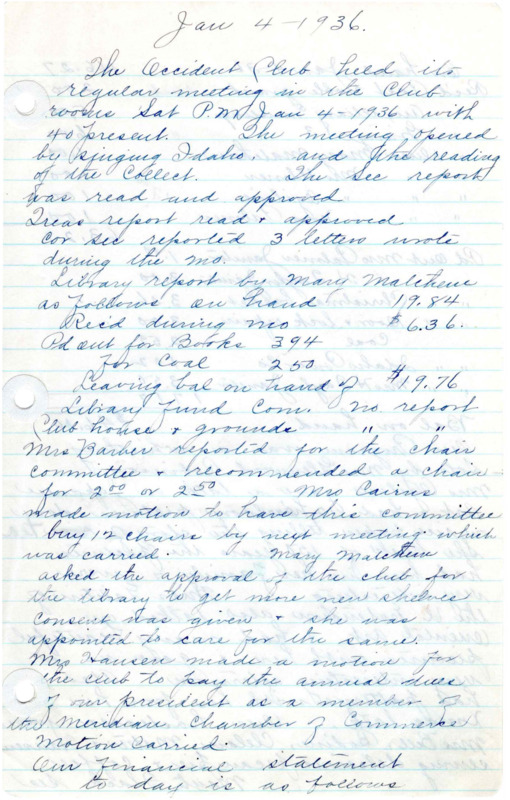 Jan 4 - 1936.
The Occident Club held its
regular meeting in the Club
rooms Sat P.M. Jan 4 - 1936 with
40 present. The meeting opened
by singing Idaho. and the reading
of the Collect. The Sec report
was read and approved
Treas report read & approved
Cor sec reported 3 letters wrote
during the mo.
Library report by Mary
as follows on hand 19.84
Rec'd during mo $6.36.
Pd out for Books 394
For Coal 250
Leaving bal on hand of $19.76
Library Fund Com. no report
Club house & grounds " "
Mrs Barber reported for the chair
committee & recommended a chair
for 2.00 or 2.50 Mrs Cairns
made motion to have this committee
buy 12 chairs by next meeting which
was carried. Mary
asked the approval of the club for
the library to get more new shelves
Consent was given & she was
appointed to care for the same.
Mrs Hansen made a motion for
the club to pay the annual dues
of our president as a member of
the Meridian Chamber of Commerce
Motion Carried.
Our Financial statement
to day is as follows